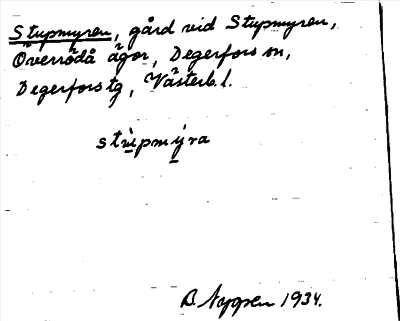 Stupmyren, gård vid Stupmyren,
Överrödå ägor, Degerfors sn,
Degerfors tg, Västerb. l.
stupmyra
B. 1934.